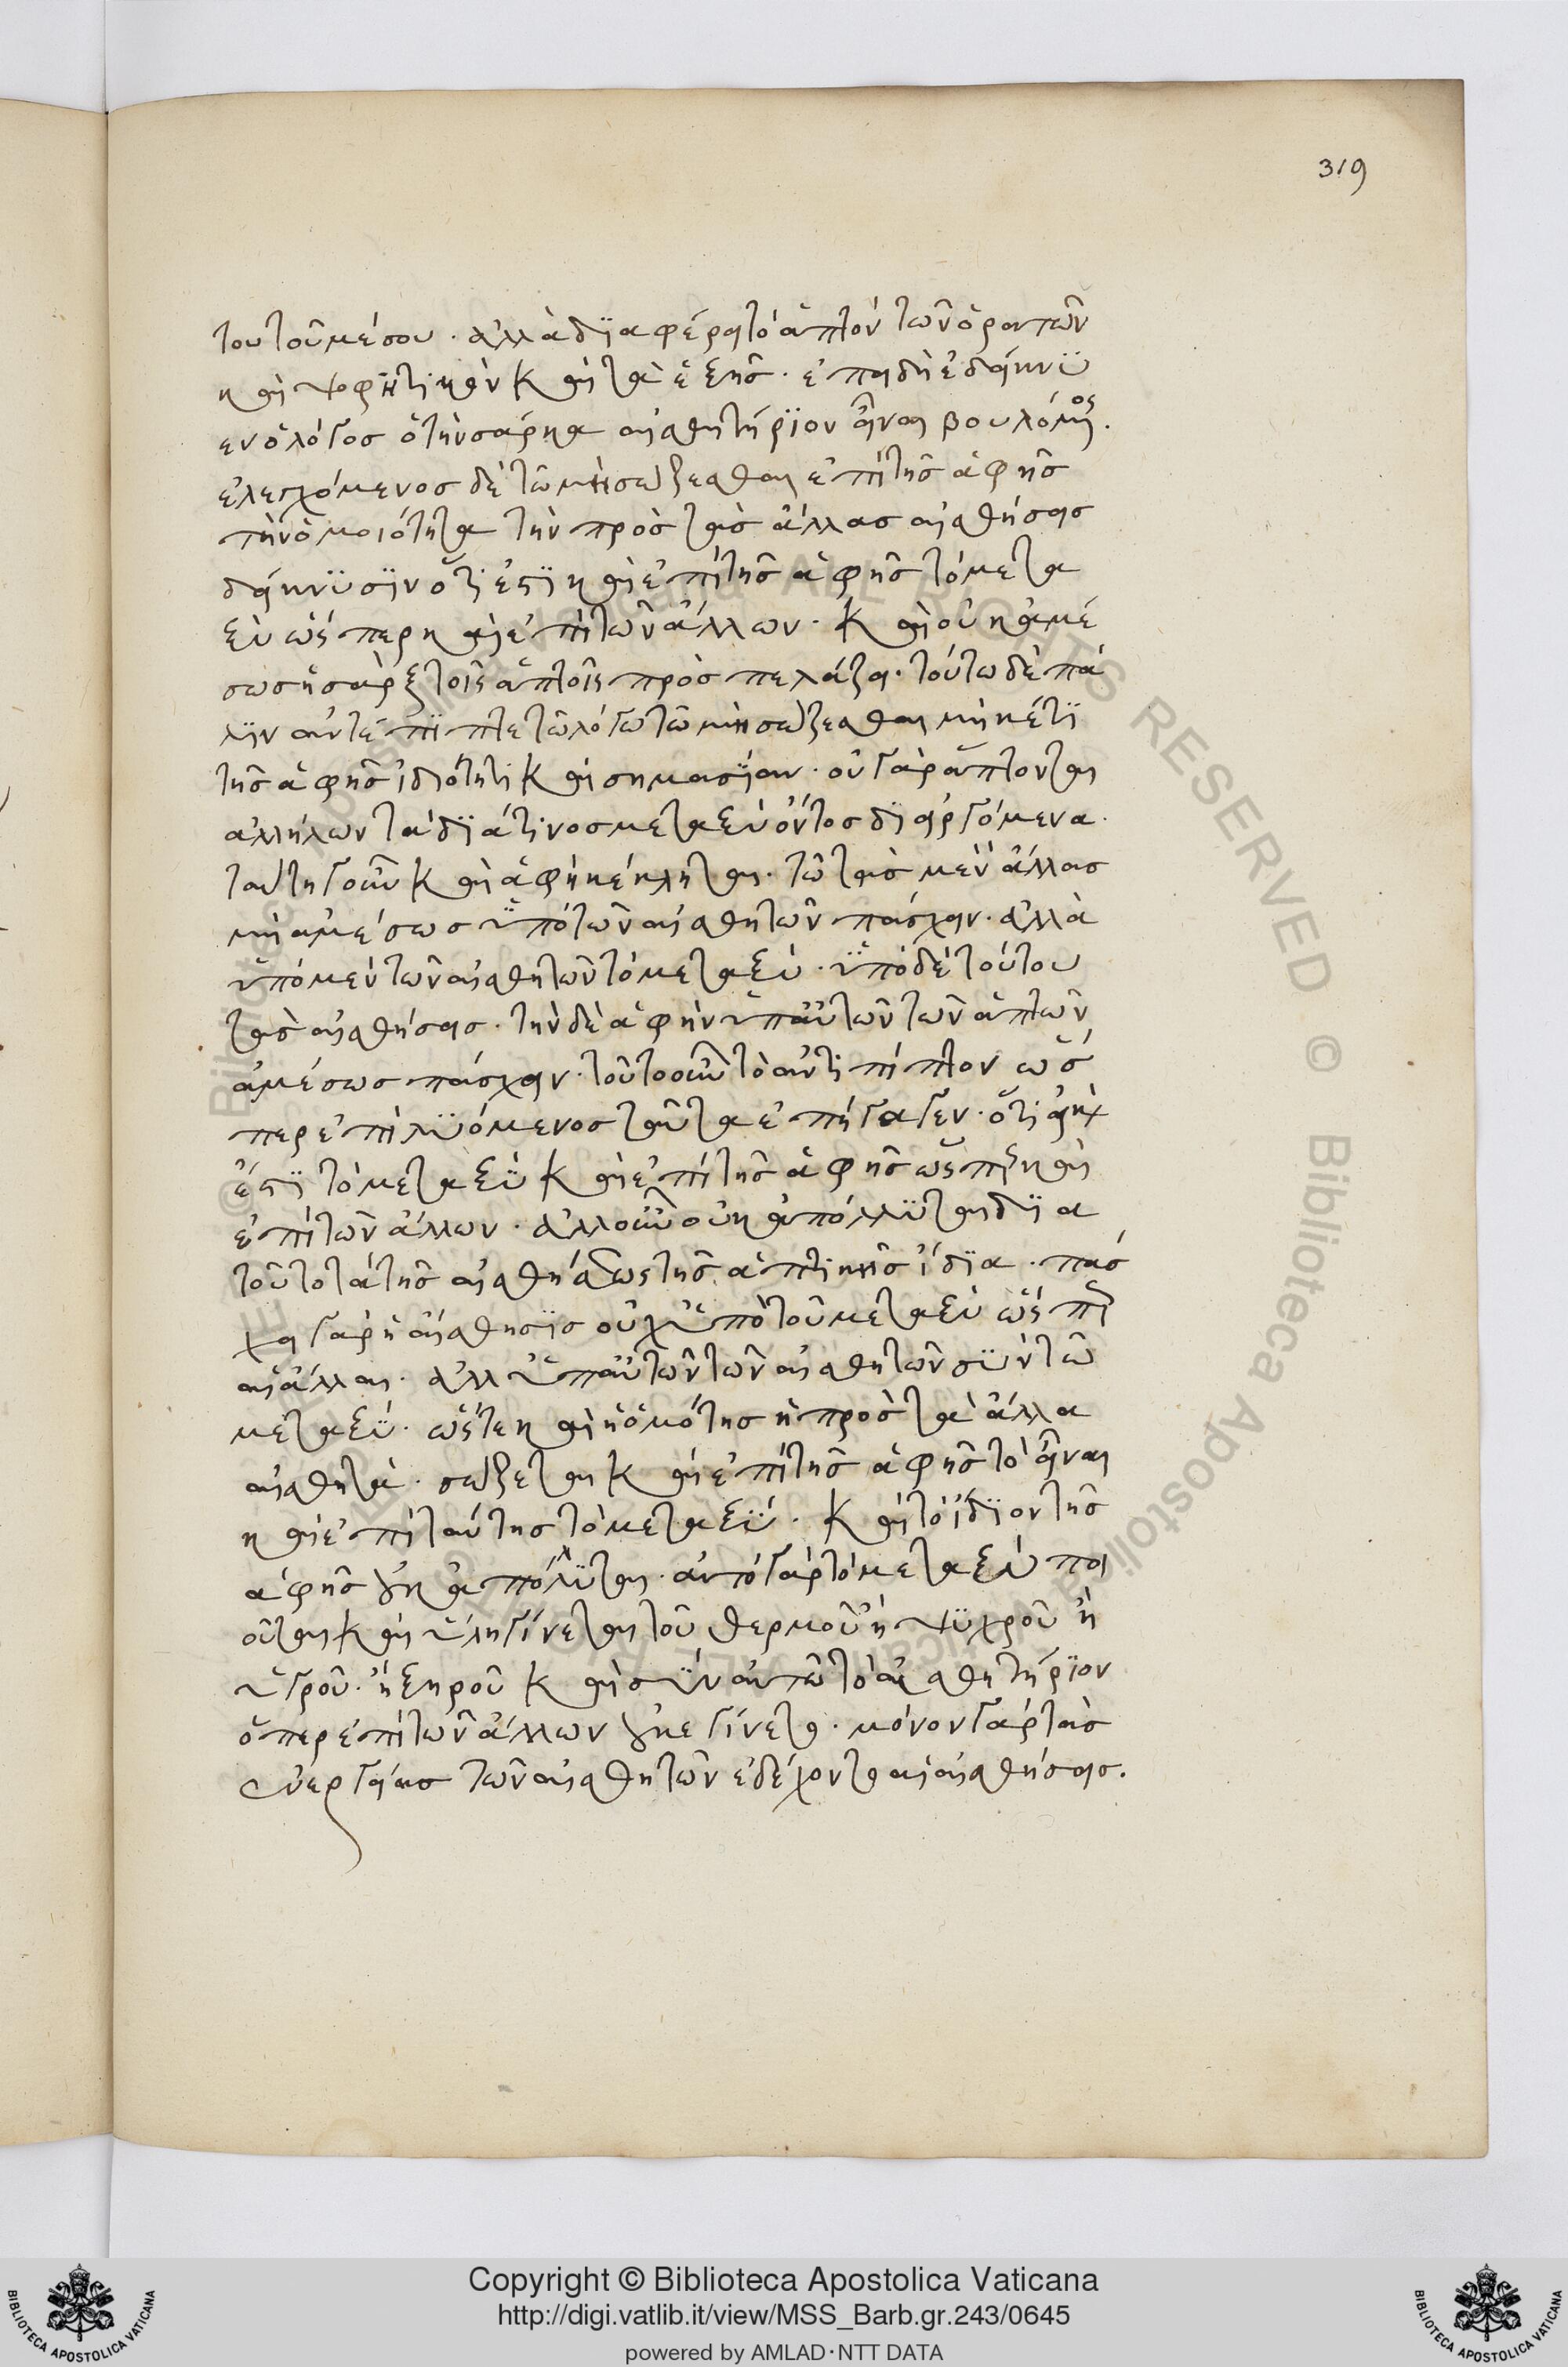 319
του τοῦ μέσου. ἀλλὰ διαφέρει τὸ ἁπτὸν τῶν ὁρατῶν
καὶ ψοφητικῶν καὶ τὰ ἑξῆς. ἐπειδὴ ἐδείκνυ
εν ὁ λόγος ὁ τὴν σάρκα αἰσθητήριον εἶναι βουλόμενος.
ἐλεγχόμενος δὲ τῶ μὴ σώζεσθαι ἐπὶ τῆς ἁφῆς
τὴν ὁμοιότητα τὴν πρὸς τὰς ἄλλας αἰσθήσεις
δείκνυσιν ὅτι ἐστὶ καὶ ἐπὶ τῆς ἁφῆς τὸ μετα
ξὺ ὥσπερ καὶ ἐπὶ τῶν ἄλλων. καὶ οὐκ ἀμέ
σως ἡ σὰρξ τοῖς ἁπτοῖς προσπελάζει. τούτω δὲ πά
λιν ἀντέπιπτε τῶ λόγω τῶ μὴ σώζεσθαι μηκέτι
τῆς ἁφῆς ἰδιότητι καὶ σημασίαν. οὐ γὰρ ἅπτονται
ἀλλήλων τὰ διά τινος μεταξὺ ὄντος διειργόμενα.
ταύτη γοῦν καὶ ἁφὴ κέκληται. τῶ τὰς μὲν ἄλλας
μὴ ἀμέσως ὑπὸ τῶν αἰσθητῶν πάσχειν. ἀλλὰ
ὑπὸ μὲν τῶν αἰσθητῶν τὸ μεταξύ. ὑπὸ δὲ τούτου
τὰς αἰσθήσεις. τὴν δὲ ἁφὴν ὑπ' αὐτῶν τῶν ἁπτῶν
ἀμέσως πάσχειν. τοῦτο οὖν τὸ ἀντιπίπτον ὥσ
περ ἐπιλυόμενος ταῦτα ἐπήγαγεν. ὅτι εἰ καὶ
ἔστι τὸ μεταξὺ καὶ ἐπὶ τῆς ἁφῆς ὥσπερ καὶ
ἐπὶ τῶν ἄλλων. ἀλλ' οὖν οὐκ ἀπόλλυται δια
τοῦτο τὰ τῆς αἰσθήσεως τῆς ἁπτικῆς ἴδια. πάσ
χει γὰρ ἡ αἴσθησις οὐχ ὑπὸ τοῦ μεταξὺ ὥσπερ
αἱ ἄλλαι. ἀλλ' ὑπ' αὐτῶν τῶν αἰσθητῶν σὺν τῶ
μεταξύ. ὥστε καὶ ἡ ὁμότης ἡ πρὸς τὰ ἄλλα
αἰσθητά. σώζεται καὶ ἐπὶ τῆς ἁφῆς τὸ εἶναι
καὶ ἐπὶ ταύτης τὸ μεταξύ. καὶ τὸ ἴδιον τῆς
ἁφῆς οὐκ ἀπόλλυται. αὐτὸ γὰρ τὸ μεταξὺ ποι
οῦται καὶ ὕλη γίνεται τοῦ θερμοῦ ἢ ψυχροῦ ἢ
ὑγροῦ. ἢ ξηροῦ καὶ σὺν αὐτῶ τὸ αἰσθητήριον
ὅπερ ἐπὶ τῶν ἄλλων οὐκ ἐγίνετο. μόνον γὰρ τὰς
ἐνεργείας τῶν αἰσθητῶν ἐδέχοντο αἱ αἰσθήσεις.
Copyright © Biblioteca Apostolica Vaticana
http://digi.vatlib.it/view/MSS_Barb.gr.243/0645
powered by AMLAD·NTT DATA